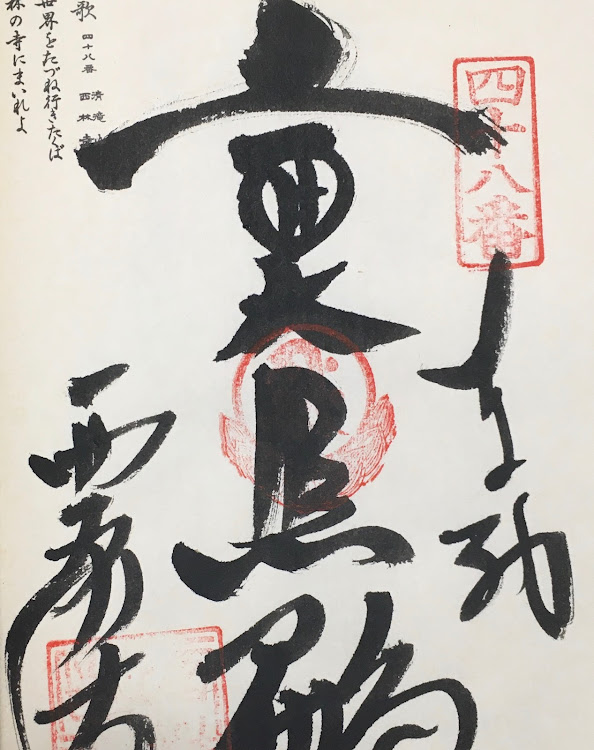 四十八番
奉納
十一面
大悲殿
西林寺
歌 四十八番 清滝山 西林寺
世界をたづね行きたくば
林の寺にまいれよ